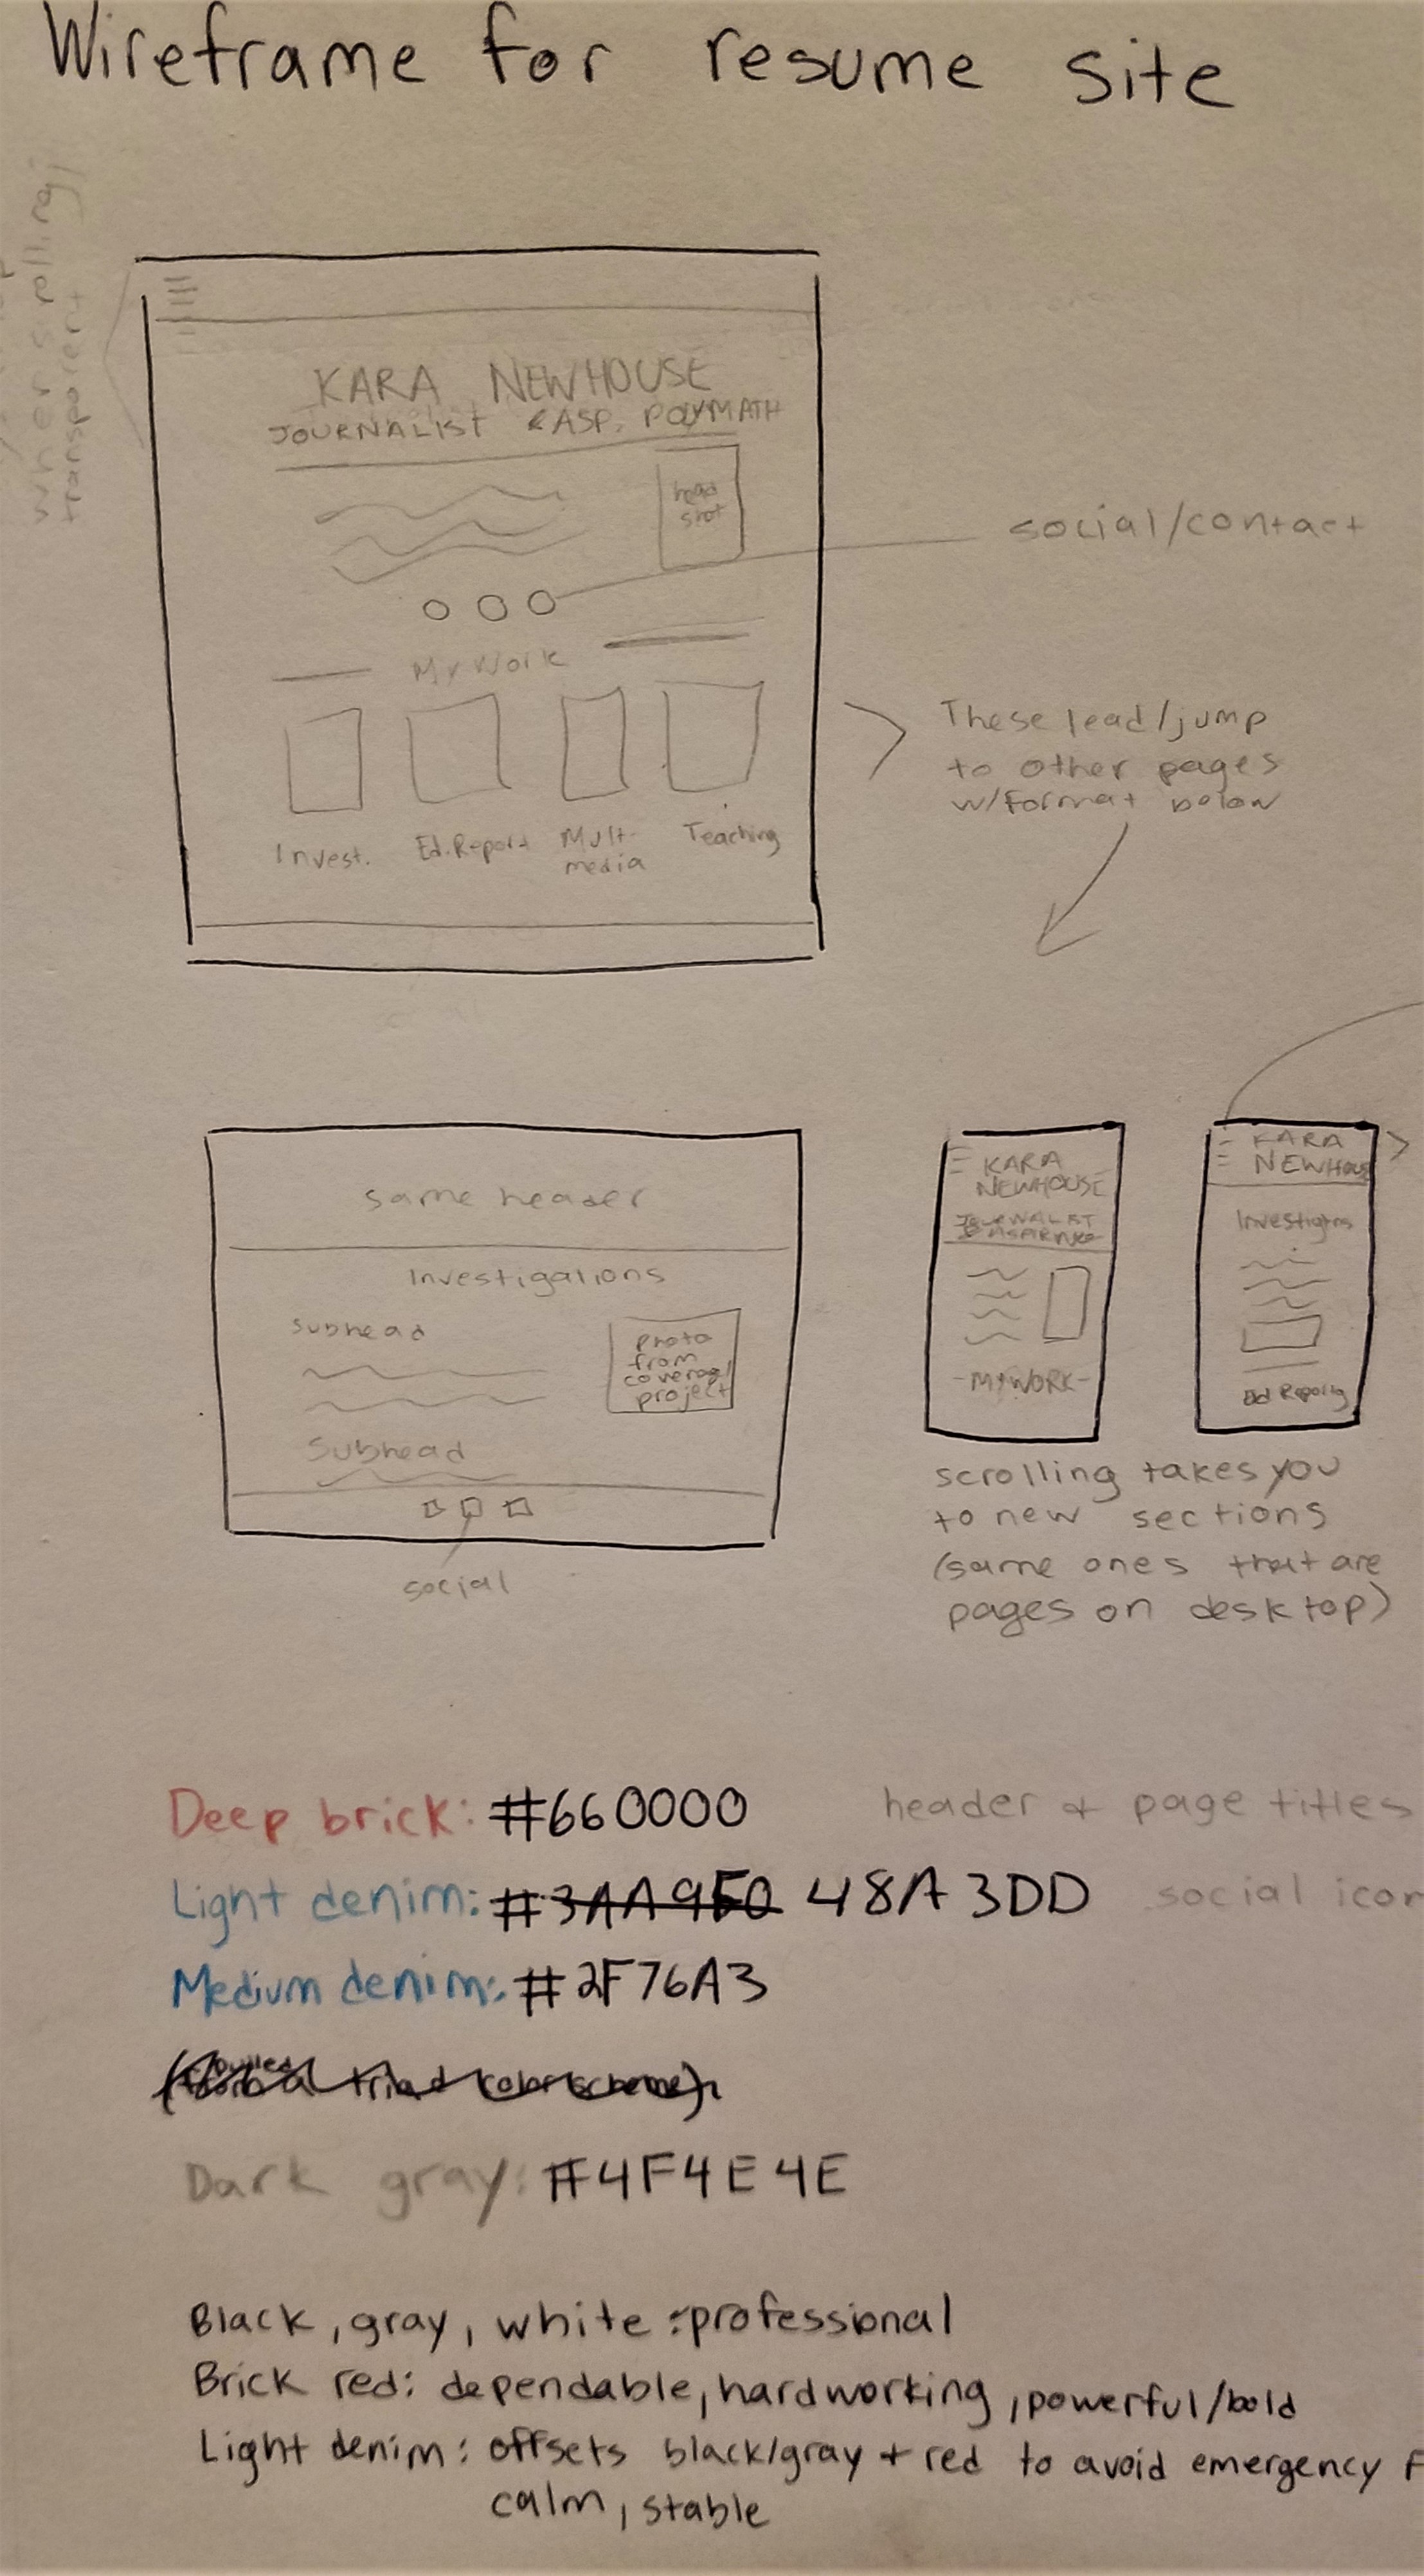 Wireframe for resume site
when scrolling;
transparent
KARA NEWHOUSE
JOURNALIST & ASP. POLYMATH
head
shot
social/contact
My Work
These lead/jump
to other pages
w/format below
Invest.
Ed. Report
Mult-
media
Teaching
same header
Investigations
Subhead
photo
from
coverage/
project
Subhead
social
KARA
NEWHOUSE
JOURNALIST
-MY WORK-
KARA
NEWHOUS
Ed Reporting
scrolling takes you
to new sections
(same ones that are
pages on desktop)
Deep brick: #660000 header & page titles
Light denim: #3AA9F0 48A3DD social icon
Medium denim: #2F76A3
triad color scheme)
Dark gray: #4F4E4E
Black, gray, white: professional
Brick red: dependable, hardworking, powerful/bold
Light denim: offsets black/gray + red to avoid emergency F
calm, stable